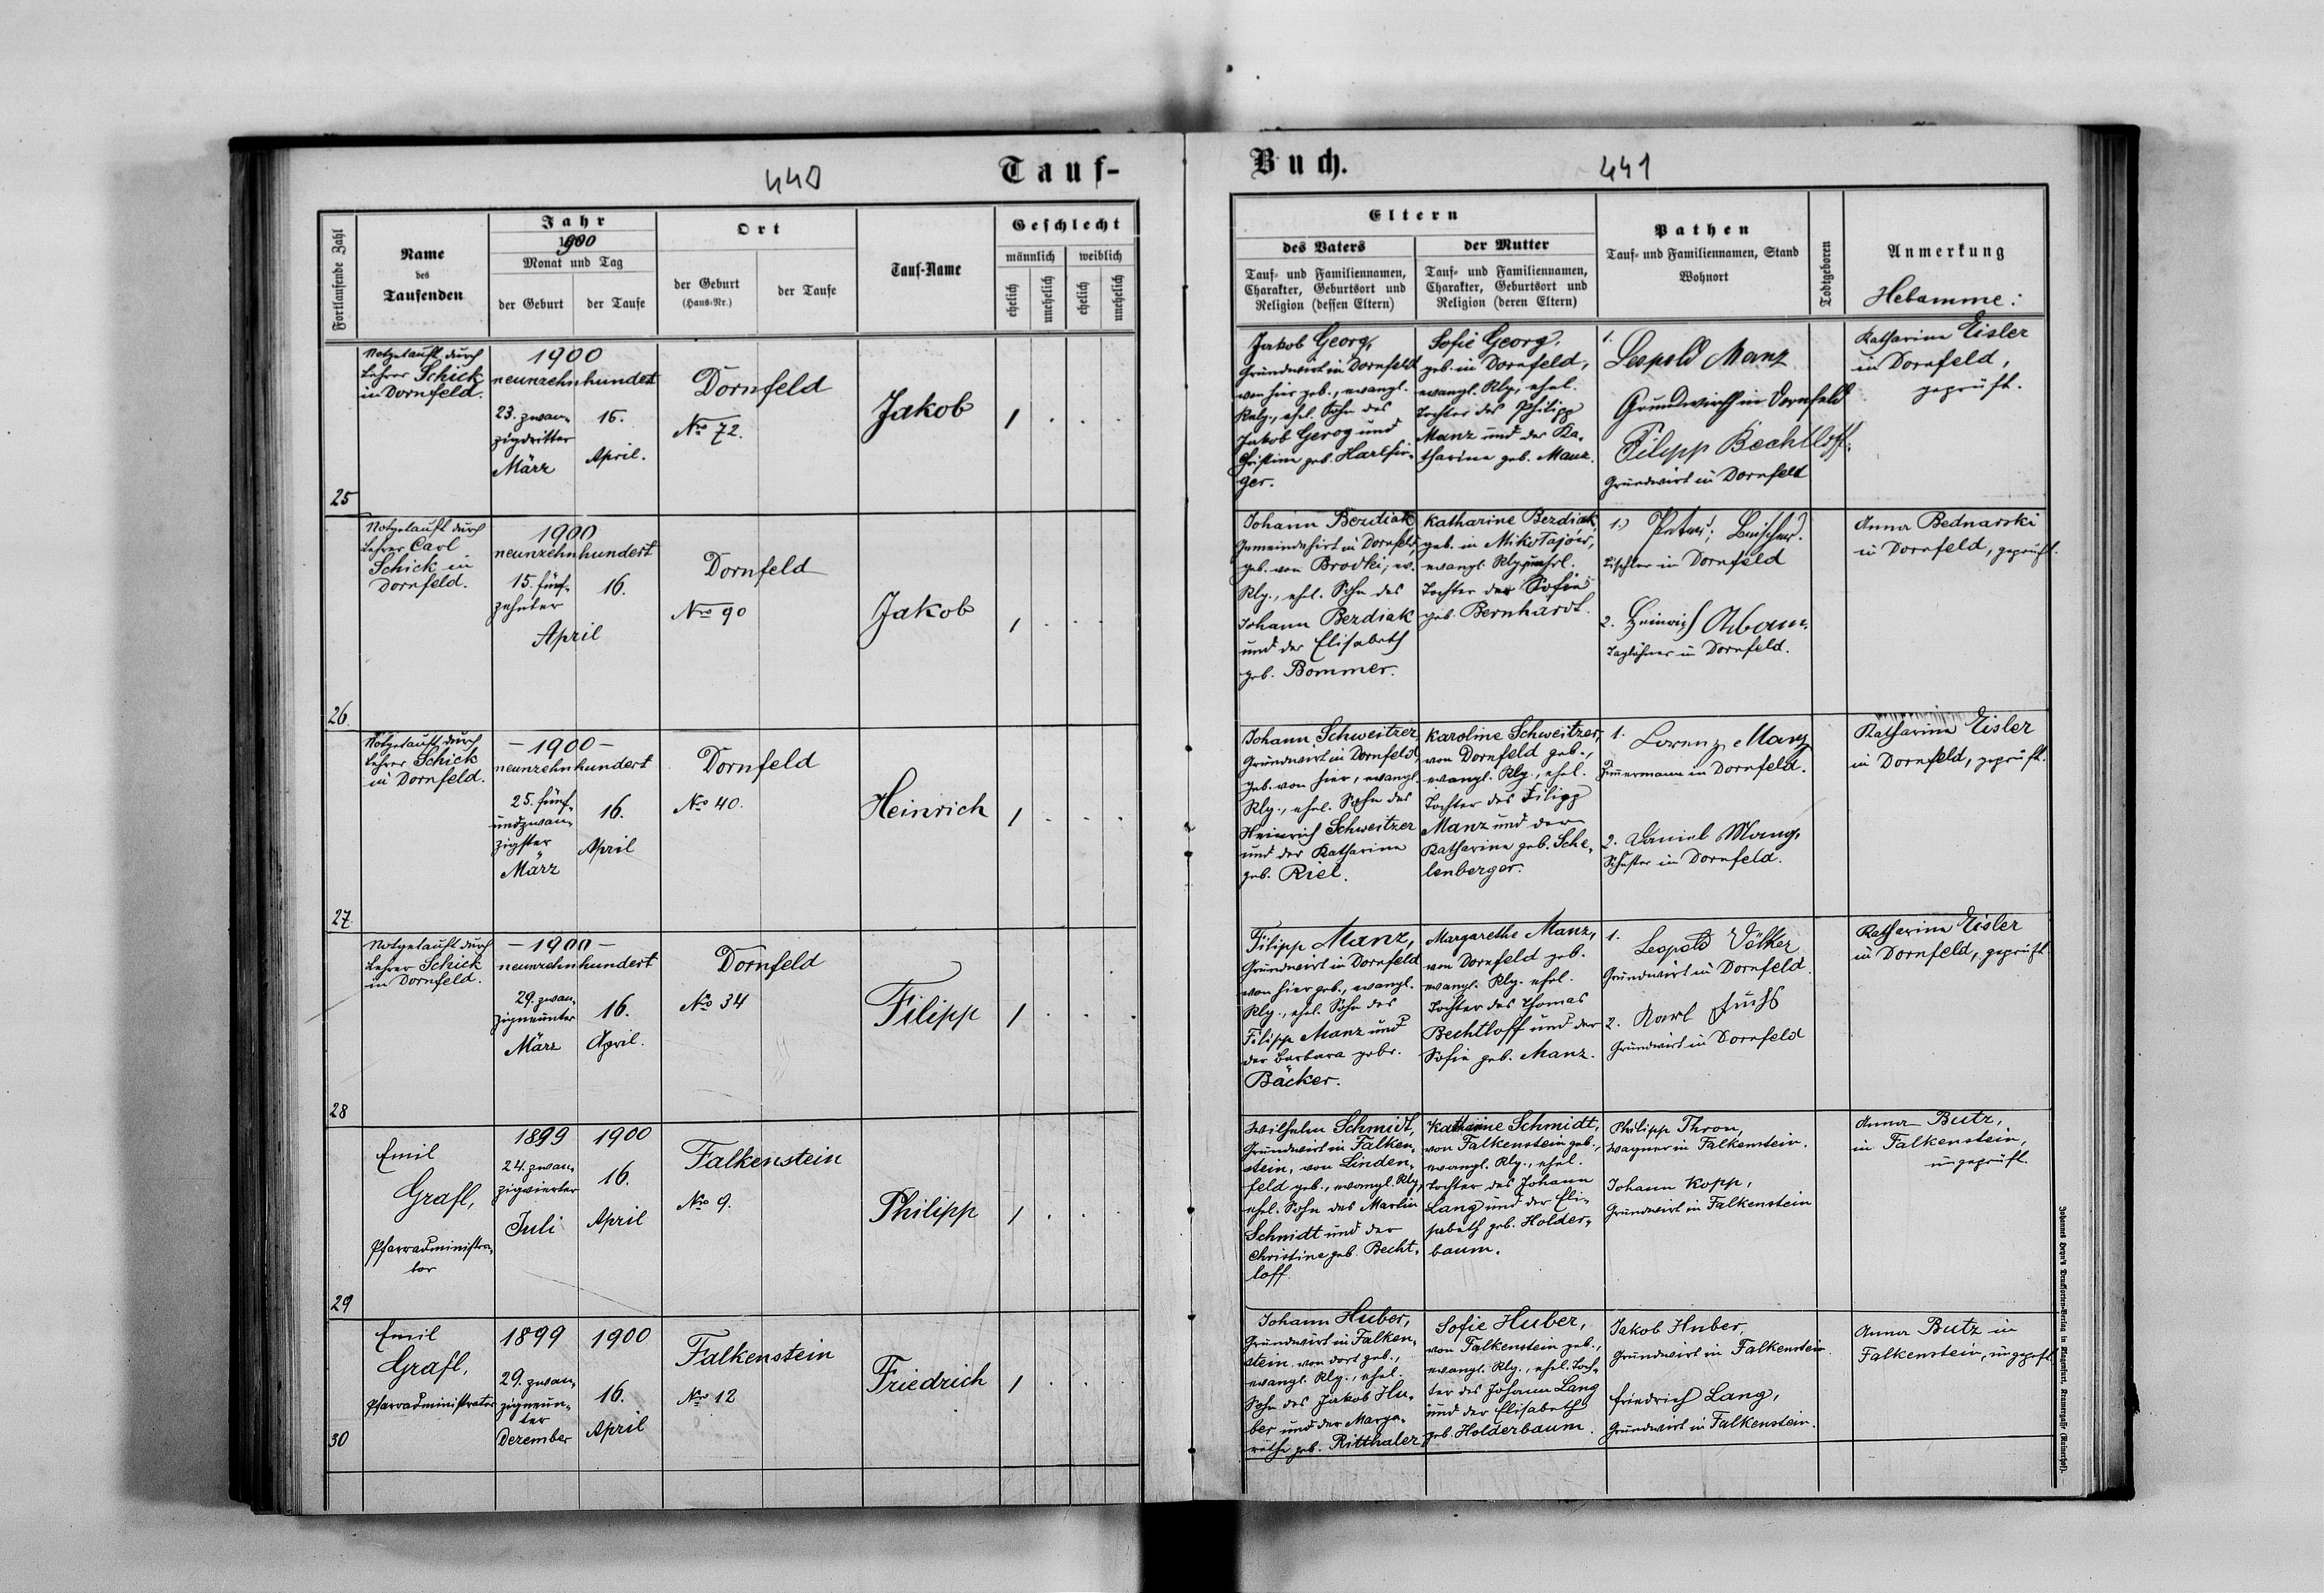 440
Tauf-
Fortlaufende Zahl
Name
des
Taufenden
Jahr
1900
Monat und Tag
der Geburt
der Taufe
Ort
der Geburt
(Haus-Nr.)
der Taufe
Tauf-Name
Geschlecht
männlich
weiblich
ehelich
unehelich
ehelich
unehelich
25
Notgetauft durch
Lehrer Schick
in Dornfeld.
1900
neunzehnhundert
23. zwan-
zigdritter
März
16.
April.
Dornfeld
Nro 72.
Jakob
1
26.
Notgetauft durch
Lehrer Carl
Schick in
Dornfeld.
1900
neunzehnhundert
15. fünf-
zehnter
16.
April
Dornfeld
Nro 90
Jakob
1
27.
Notgetauft durch
Lehrer Schick
in Dornfeld.
- 1900 -
neunzehnhundert
25. fünf-
undzwan-
zigster
März
16.
April
Dornfeld
Nro 40.
Heinrich
1
28
Notgetauft durch
Lehrer Schick
in Dornfeld.
- 1900 -
neunzehnhundert
29. zwan-
zigneunter
März
16.
April.
Dornfeld
Nro 34
Filipp
1
29
Emil
Grafl,
Pfarradministra-
tor
1899
24. zwan-
zigvierter
Juli
1900
16.
April
Falkenstein
Nro 9.
Philipp
1
30
Emil
Grafl,
Pfarradministrator
1899
29. zwan-
zigneun-
ter
Dezember
1900
16.
April
Falkenstein
Nro 12
Friedrich
1
Buch.
441
Eltern
des Vaters
Tauf- und Familiennamen,
Charakter, Geburtsort und
Religion (dessen Eltern)
der Mutter
Tauf- und Familiennamen,
Charakter, Geburtsort und
Religion (deren Eltern)
Pathen
Tauf- und Familiennamen, Stand
Wohnort
Todtgeboren
Anmerkung
Hebamme:
Jakob Georg,
Grundwirt in Dornfeld
von hier geb., evangl.
Relg., ehel. Sohn des
Jakob Gerog und
Christine geb. Harlfin-
ger.
Sofie Georg,
geb. in Dornfeld,
evangl. Rlg., ehel.
Tochter des Philipp
Manz und der Ka-
tharina geb. Manz.
1.
Leopold Manz
Grundwirth in Dornfeld
Filipp Bechtloff.
Grundwirt in Dornfeld
Katharina Eisler
in Dornfeld,
geprüft.
Johann Berdiak
Gemeindehirt in Dornfeld,
geb. von Brodki, ev.
Rlg., ehel. Sohn des
Johann Berdiak
und der Elisabeth
geb. Bommer.
Katharine Berdiak,
geb. in
evangl. Rlg., unehel.
Tochter der Sofie
geb. Bernhardt.
1.)
Tischler in Dornfeld
2. Heinrich
Taglöhner in Dornfeld.
Anna Bednarski
in Dornfeld, geprüft.
Johann Schweitzer,
Grundwirt in Dornfeld,
geb. von hier, evangl.
Rlg., ehel. Sohn des
Heinrich Schweitzer
und der Katharina
geb. Riel.
Karoline Schweitzer,
von Dornfeld geb.,
evangl. Rlg., ehel.
Tochter des Filipp
Manz und der
Katharina geb. Sche-
lenberger.
1. Lorenz Manz
Zimmermann in Dornfeld.
2. Daniel Manz
in Dornfeld.
Katharina Eisler
in Dornfeld, geprüft.
Filipp Manz,
Grundwirt in Dornfeld
von hier geb., evangl.
Rlg., ehel. Sohn des
Filipp Manz und
der Barbara gebr.
Bäcker.
Margarethe Manz,
von Dornfeld geb.
evangl. Rlg. ehel.
Tochter des Thomas
Bechtloff und der
Sofie geb. Manz.
1.
Leopold Völker
Grundwirt in Dornfeld.
2. Karl Fuchs
Grundwirt in Dornfeld
Katharina Eisler
in Dornfeld, geprüft.
Wilhelm Schmidt,
Grundwirt in Falken-
stein, von Linden-
feld geb., evangl. Rlg.,
ehel. Sohn des Martin
Schmidt und der
Christine geb. Becht-
loff.
Katharine Schmidt,
von Falkenstein geb.,
evangl. Rlg., ehel.
Tochter des Johann
Lang und der Eli-
sabeth geb. Holder-
baum.
Philipp Thron,
Wagner in Falkenstein.
Johann Kopp,
Grundwirt in Falkenstein
Anna Butz,
in Falkenstein,
ungeprüft.
Johann Huber,
Grundwirt in Falken-
stein, von dort geb.,
evangl. Rlg., ehel.
Sohn des Jakob Hu-
ber und der Marga-
rethe geb. Ritthaler
Sofie Huber,
von Falkenstein geb.,
evangl. Rlg., ehel. Toch-
ter des Johann Lang
und der Elisabeth
geb. Holderbaum.
Jakob Huber,
Grundwirt in Falkenstein.
Friedrich Lang,
Grundwirt in Falkenstein.
Anna Butz in
Falkenstein, ungeprft.
Johannes Heyn's Drucksorten-Verlag in Klagenfurt, Kramergasse (Rainerhof).